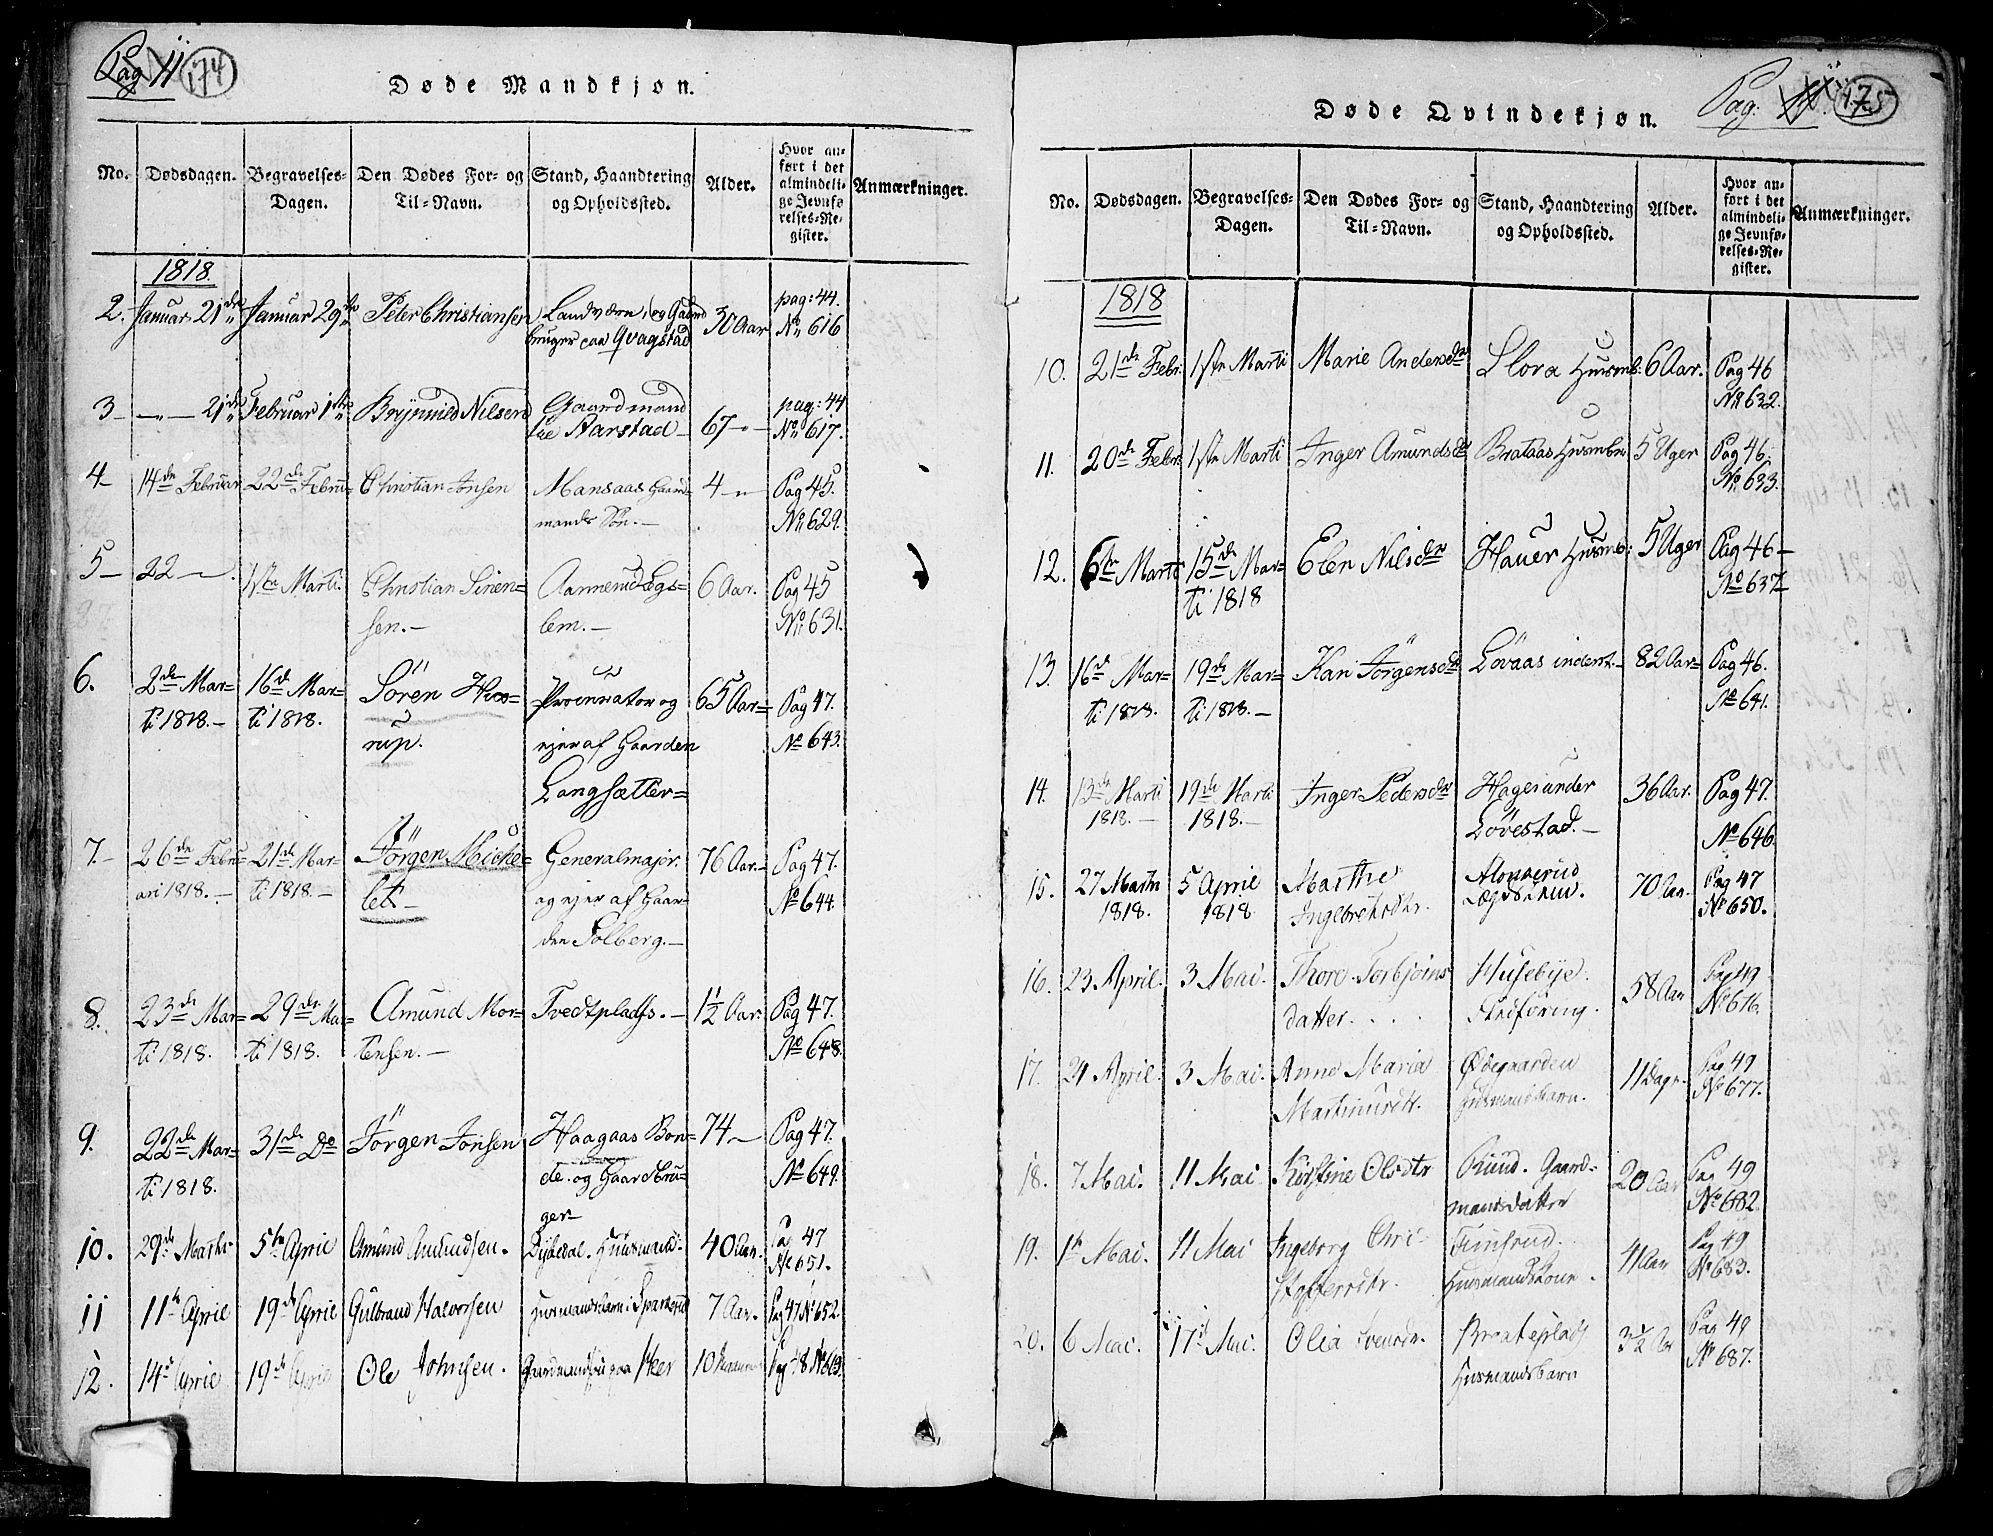 Pag 11 174
Døde Mandkjøn.
No. Dødsdagen. Begravelses-Dagen. Den Dødes For- og Til-Navn. Stand, Haandtering og Opholdssted. Alder. Hvor anført i det almindelige Jevnførelses-Register. Anmærkninger.
1818.
2. Januar 21de Januar 29de Peter Christiansen Landværn, og Gaardbruger paa Qvagstad 30 Aar pag: 44. No 616
3 — „ — 21de Februar 1ste Brynnild Nilsen Gaardmand paa Harstad 67 - „ - pag: 44 No 617.
4 14de Februar 22de Febru- Christian Jonsen Mansaas Gaardmands Søn. 4 - „ - Pag 45. No 629.
5 22 — „ 1ste Marti Christian Sirensen. Aannerud Lægslem. 6 Aar. Pag 45 No 631.
6. 2de Marti 1818. 16de Marti 1818. Sören Hiorup. Procurator og ejer af Gaarden Langsætter 65 Aar Pag 47. No 643.
7. 26de Februari 1818. 21de Marti 1818. Jörgen Michelet Generalmajor. og ejer af Gaarden Solberg. 76 Aar Pag 47. No 644.
8. 23de Marti 1818. 29de Marti 1818. Amund Mortensen. Tvedtpladss. 1½ Aar. Pag 47. No 648.
9. 22de Marti 1818. 31de Do Jörgen Jonsen Haagaas Bonde og Gaardbruger 74 Pag 47. No 649.
10. 29de Marti 5te April Amund Amundsen. Dybedal. Huusmand 40 Aar. Pag 47 No 651.
11 11te April 19de April Gulbrand Halvorsen Husmandsbarn i Sparkerud 7 Aar. Pag 47 No 652.
12. 14de April 19de April Ole Johnsen. Gaardmand paa Skeer 10
Døde Qvindekjøn. Pag. 175
No. Dødsdagen. Begravelses-Dagen. Den Dødes For- og Til-Navn. Stand, Haandtering og Opholdssted. Alder. Hvor anført i det almindelige Jevnførelses-Register. Anmærkninger.
1818
10. 21de Febr. 1ste Marti Marie Andersdtr Slora Husmb. 6 Aar. Pag 46 No 632.
11. 20de Febr. 1ste Marti Inger Amundsdtr Brataas Husmbn 5 Uger Pag 46. No 633.
12. 6te Marti 15de Marti 1818 Elen Nilsdtr Hauer Husmb: 5 Uger Pag 46 No 637
13. 16de Marti 1818. 19de Marti 1818. Kari Jörgensdtr Lövaas inderst. 82 Aar Pag 46. No 641.
14. 13de Marti 1818. 19de Marti 1818. Inger Pedersdtr Hagen under Lövestad. 36 Aar. Pag 47. No 646.
15. 27 Martii 1818. 5 April 1818 Marthe Ingebretsdtr. Alonnerud Lægdslem. 70 Aar. Pag 47 No 650.
16. 23 April. 3 Mai. Thore Torbjörnsdatter. . . . Husebye. 58 Aar Pag 49 No 676.
17. 24 April. 3 Mai. Anne Maria Martinusdtr. Ødegaarden Husmandsbarn. 11 Dage. Pag 49 No 677.
18. 7 Mai. 11 Mai Kirstine Olsdtr Gaardmandsdatter 20 Aar Pag 49 No 682.
19. 1te Mai. 11 Mai Ingeborg Christoffersdtr. Finsrud. Husmandskone. 41 Aar Pag 49 No 683.
20. 6 Mai. 17de Mai. Olia Svensdr. Braateplads Husmandsbarn 3½ Aar Pag 49 No 687.